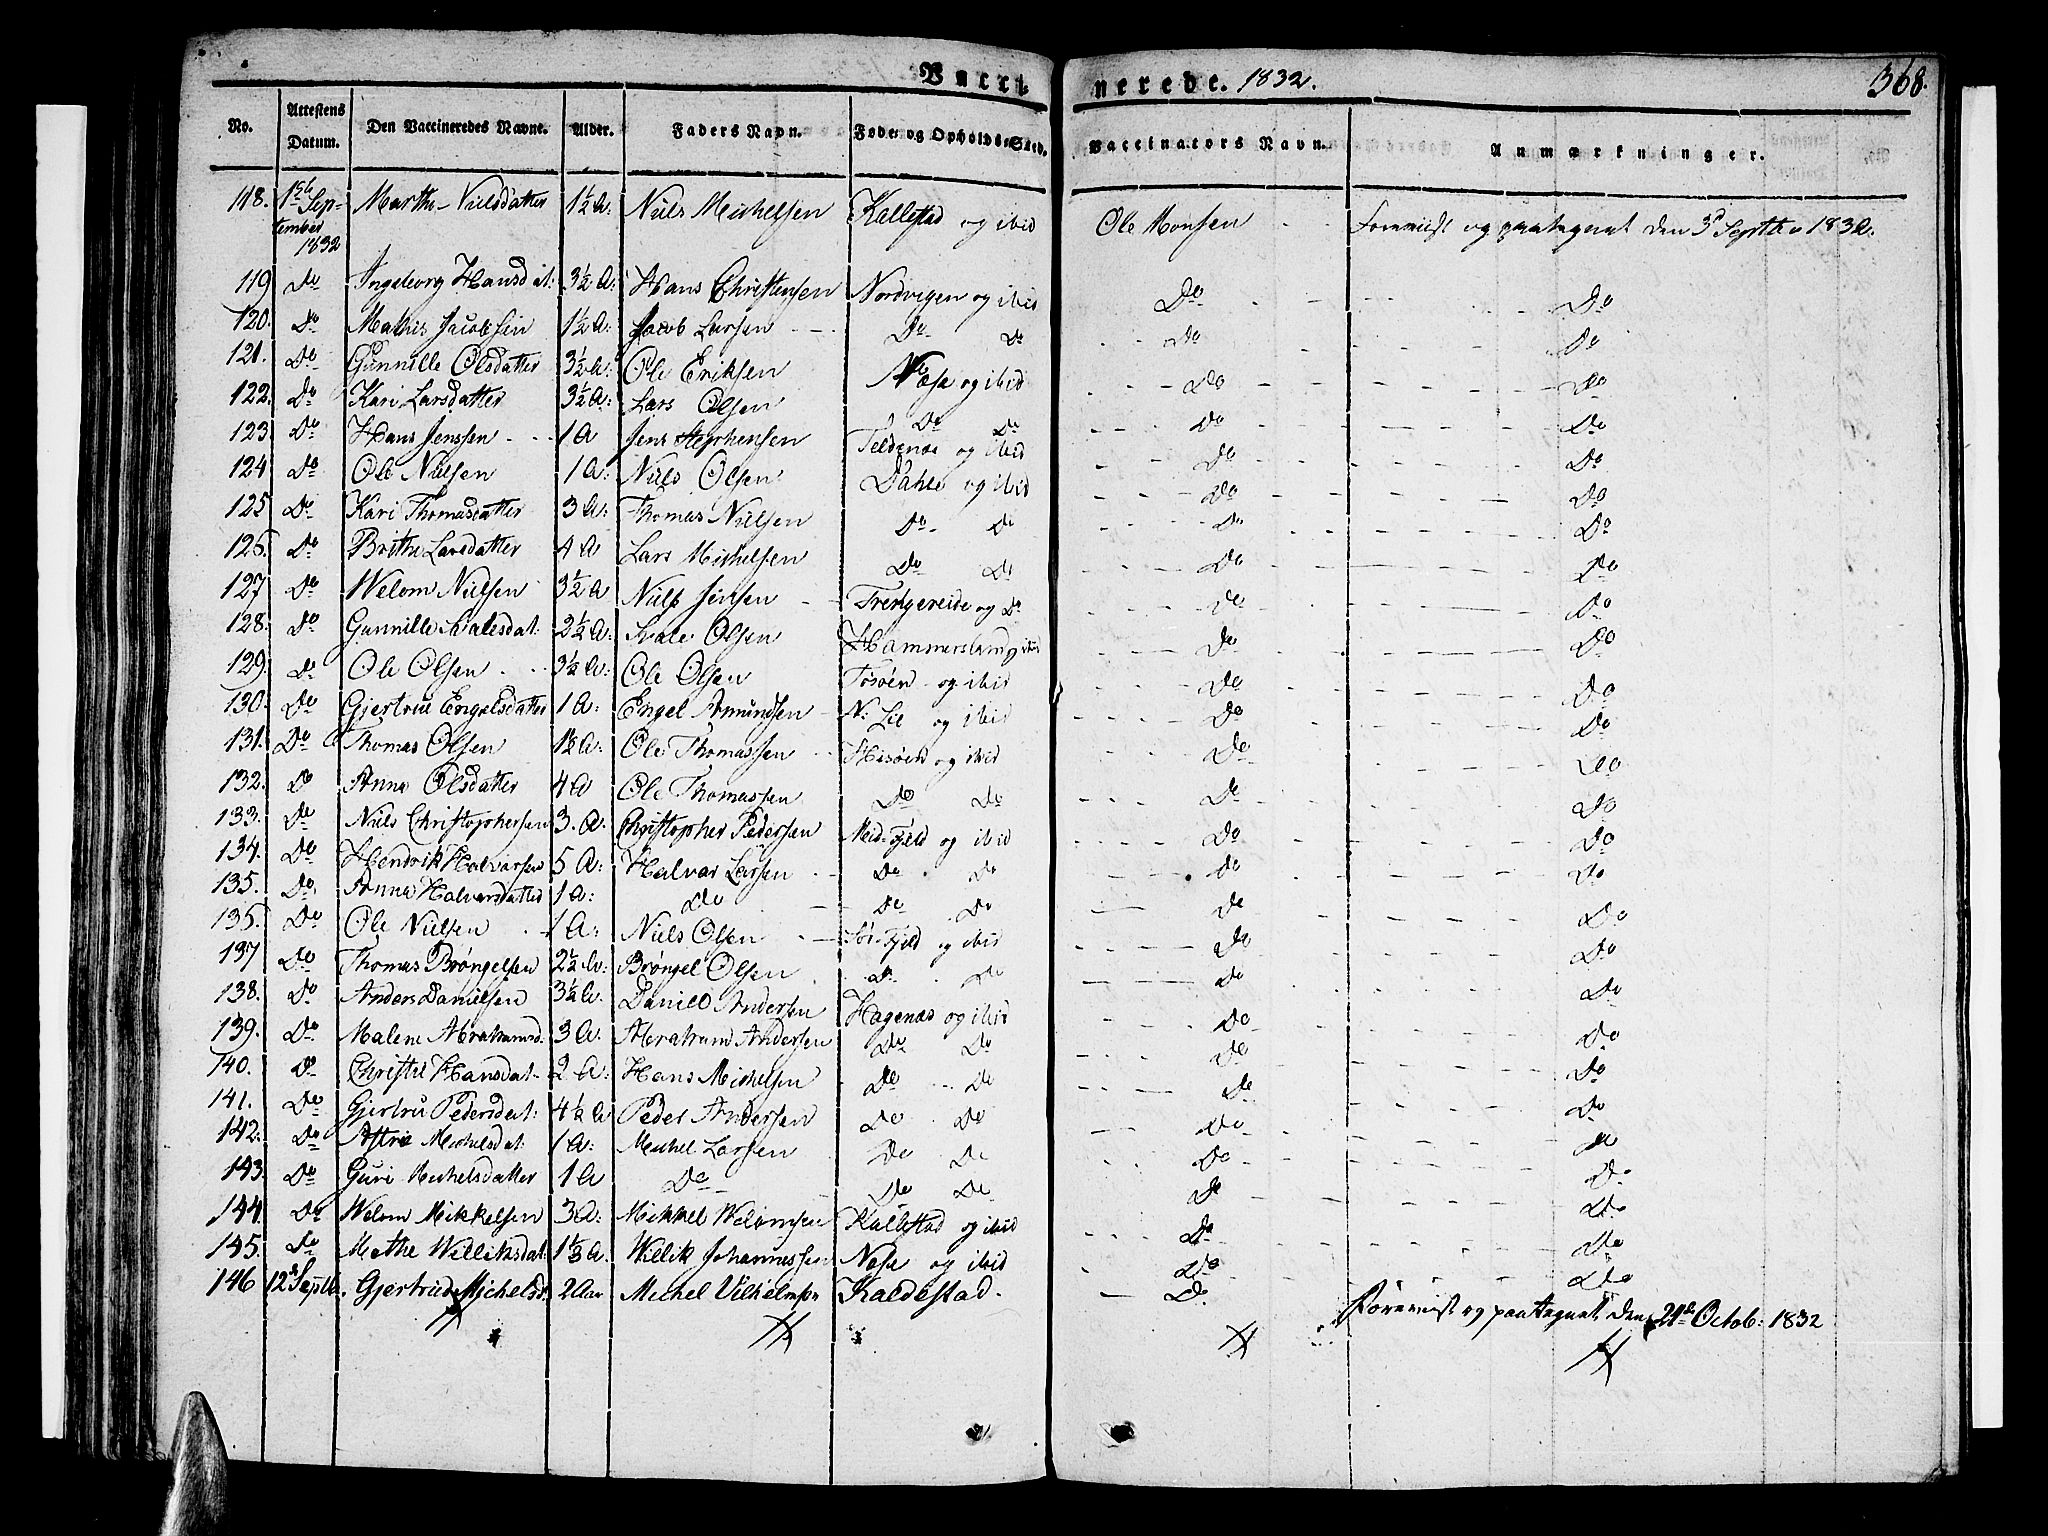 Vacci-
nerede. 1832.
368.
No. Attestens Datum. Den Vaccineredes Navne. Alder. Faders Navn. Føde- og Opholds-Sted. Vaccinators Navn. Anmærkninger.
118. 1ste September 1832 Marthe Nielsdatter 1½ A: Niels Michelsen Kallestad og ibid Ole Monsen Foreviist og paategnet den 3d Septbr 1832.
119 Do Ingeborg Hansdat: 3½ A: Hans Christensen Nordvigen og ibid Do Do
120. Do Mathis Jacobsen 1½ A Jacob Larsen Do Do Do Do
121. Do Gunnille Olsdatter 3½ A: Ole Eriksen Næse og ibid Do Do
122. Do Kari Larsdatter 3½ A: Lars Olsen Do Do Do Do
123. Do Hans Jenssen 1 A Jens Stephensen Teldenæs og ibid Do Do
124 Do Ole Nielsen 1 A: Niels Olsen Dahle og ibid Do Do
125 Do Kari Thomasdatter 3 A: Thomas Nielsen Do Do Do Do
126. Do Brithe Larsdatter 4 A Lars Michelsen Do Do Do Do
127 Do Welom Nielsen 3½ A Niels Jensen Trengereide og Do Do Do
128. Do Gunnille dat: 2½ A: Olsen Hammersland og ibid Do Do
129. Do Ole Olsen 3½ A: Ole Olsen Tøsøen og ibid Do Do
130. Do Gjertrud Engelsdatter 1 A: Engel Amundsen N: Lie og ibid Do Do
131. Do Thomas Olsen 1½ A: Ole Thomassen Hisøen og ibid Do Do
132. Do Anna Olsdatter 4 A Ole Thomassen Do Do Do Do
133. Do Niels Christophersen 3. A: Christopher Pedersen Meid-Fjeld og ibid Do Do
134. Do Hendrik Halvorsen 5 A: Halvor Larsen Do Do Do Do
135. Do Anna Halvorsdatter 1 A: Do Do Do Do Do
136. Do Ole Nielsen 1 A: Niels Olsen Sør-Fjeld og ibid Do Do
137 Do Thomas Brøngelsen 2½ A: Brøngel Olsen Do Do Do Do
138. Do Anders Danielsen 3½ A: Daniel Andersen Hagenæs og ibid Do Do
139. Do Malene Abrahamsd. 3 A: Abraham Andersen Do Do Do Do
140. Do Christie Hansdat 2 A: Hans Michelsen Do Do Do Do
141. Do Gjertru Pedersdat: 4½ A Peder Andersen Do Do Do Do
142. Do Astrie Michelsdat: 1 A: Michel Larsen Do Do Do Do
143. Do Guri Michelsdatter 1 A Do Do Do Do Do
144. Do Welom Mikkelsen 3 A: Mikkel Welomsen Kallestad og ibid Do Do
145. Do Mathe Williksdat: 1½ A: Willik Johannessen Næse og ibid Do Do
146 12 Septbr. Gjertrud Michelsd. 2 Aar Michel Vilhelmsn Kaldestad. Do. Foreviist og paategnet den 21de Octob: 1832